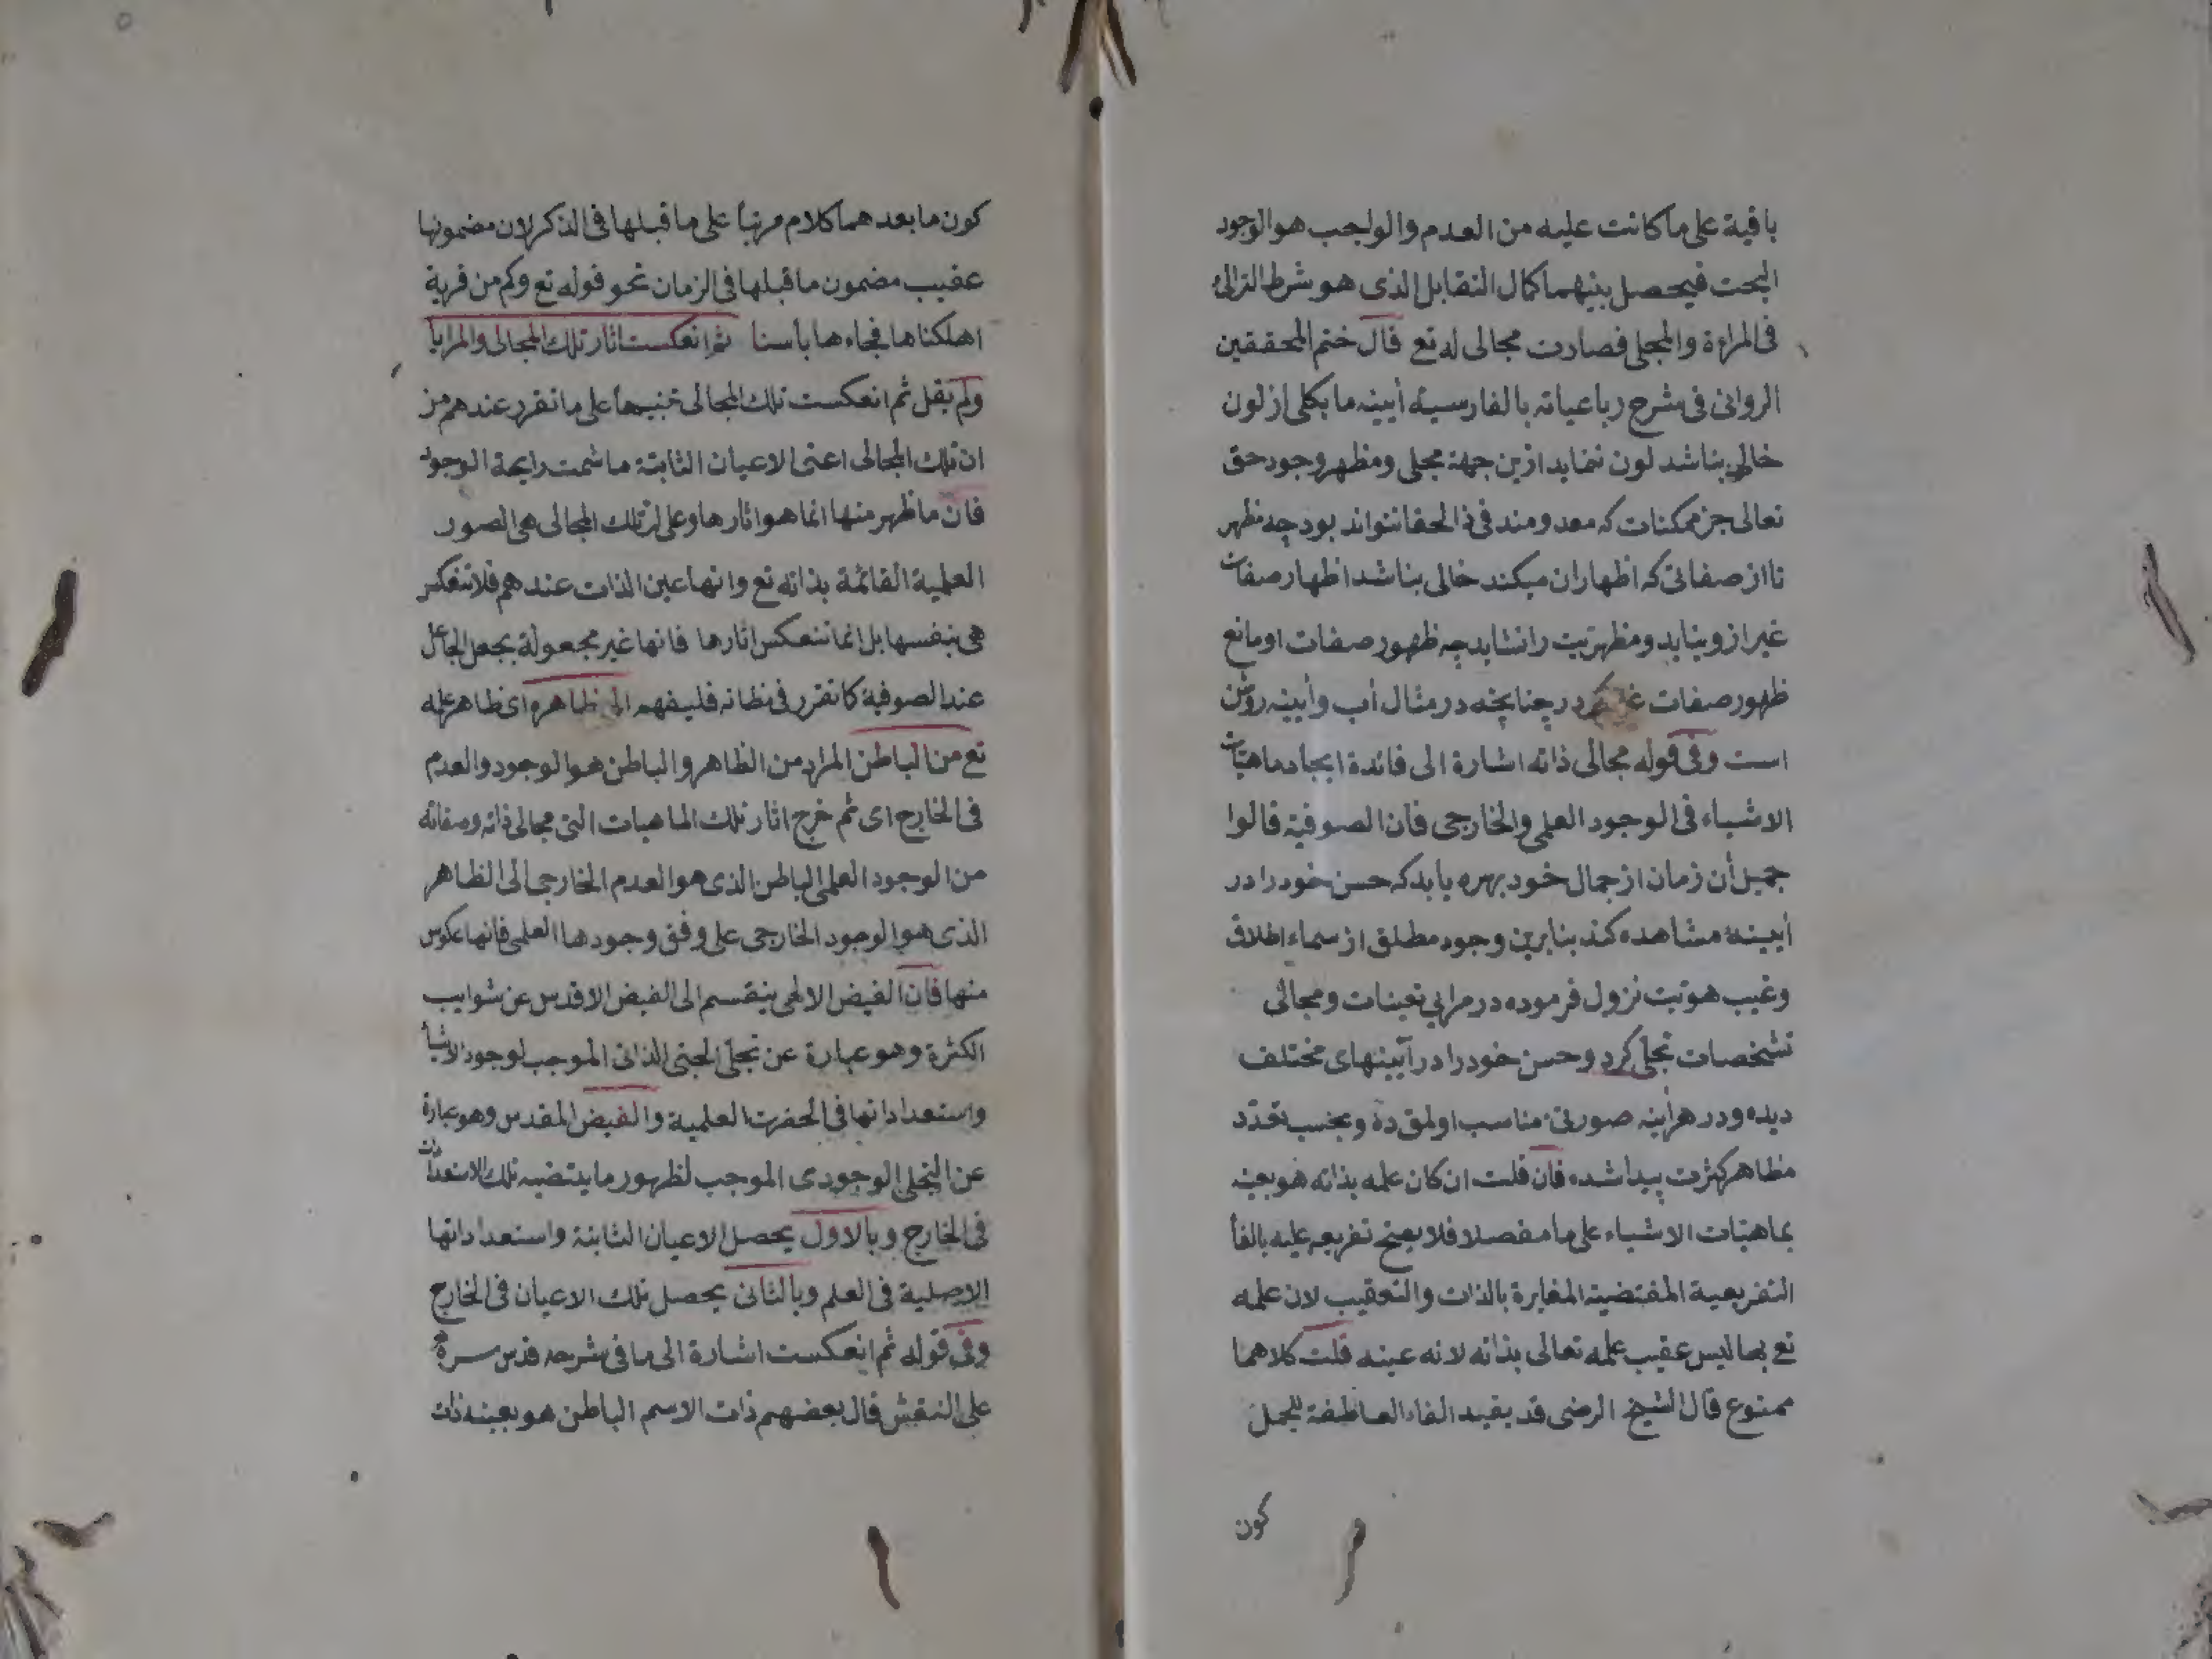 باقية على ما كانت عليه من العدم والواجب هو الوجود
البحت فيحصل بينهما كمال التقابل الذى هو شرط الترائى
فى المراءة والمجلى فصارت مجالى له تع قال ختم المحققين
الروانى فى شرح رباعياته بالفارسية أيينه ما بكلى از لون
خالى بناشد لون ننمايد ازين جهة مجلى ومظهر وجود حق
تعالى جز ممكنات كه معدومند فى ذا لحقا نتواند بود چه مظهر
تا از صفاتى كه اظهار ان ميكند خالى بناشد اظهار صفات
غير ازو نيايد ومظهريت را نشايد چه ظهور صفات او مانع
ظهور صفات كردد چنانچه در مثال أب وأيينه روشن
است وفى قوله مجالى ذاته اشارة الى فائدة ايجاد ماهيات
الاشياء فى الوجود العلمى والخارجى فان الصوفية قالوا
جميل أن زمان از جمال خود بهره يابد كه حسن خود را در
أيينه مشاهده كند بنابرين وجود مطلق از سماء اطلاق
وغيب هويت نزول فرموده در مرايى تعينات ومجالى
تشخصات تجلى كرد وحسن خود را در آيينهاى مختلف
ديده ودر هر أينه صورتى مناسب او وبحسب تعدد
مظاهر كثرت پيدا شده فان قلت ان كان علمه بذاته هو بعينه
بماهيات الاشياء على ما مفصلا فلا يصح تفريعه عليه بالفأ
التفريعية المقتضية المغايرة بالذات والتعقيب لان علمه
تع بها ليس عقيب علمه تعالى بذاته لانه عينه قلت كلاهما
ممنوع قال الشيخ الرضى قد يفيد الفاء العاطفة للجمل
كون
كون ما بعدهما كلام مرتبا على ما قبلها فى الذكر لان مضمونها
عقيب مضمون ما قبلها فى الزمان نحو قوله تع وكم من قرية
اهلكناها فجاءها بأسنا ثم انعكست اثار تلك المجالى والمرايا
ولم يقل ثم انعكست تلك المجالى تنبيها على ما تقرر عندهم من
ان تلك المجالى اعنى الاعيان الثابتة ما شمت رايحة الوجود
فان ما ظهر منها انما هو اثارها وعلى ان تلك المجالى هى الصور
العلمية القائمة بذاته تع وانها عين الذات عندهم فلا تنعكس
هى بنفسها بل انما تنعكس اثارها فانها غير مجعولة بجعل الجاعل
عند الصوفية كما تقرر فى مظانه فليفهم الى ظاهره اى ظاهر علمه
تع من الباطن المراد من الظاهر والباطن هو الوجود والعدم
فى الخارج اى ثم خرج اثار تلك الماهيات التى مجالى ذاته وصفاته
من الوجود العلمى الباطن الذى هو العدم الخارجى الى الظاهر
الذى هو الوجود الخارجى على وفق وجودها العلمى فانها عكوس
منها فان الفيض الالهى ينقسم الى الفيض الاقدس عن شوايب
الكثرة وهو عبارة عن تجلى الحبى الذاتى الموجب لوجود الاشيأ
واستعداداتها فى الحضرت العلمية والفيض المقدس وهو عبارة
عن التجلى الوجودى الموجب لظهور ما يقتضيه تلك الاستعدادات
فى الخارج وبالاول يحصل الاعيان الثابتة واستعداداتها
الاصلية فى العلم وبالثانى يحصل تلك الاعيان فى الخارج
وفى قوله ثم انعكست اشارة الى ما فى شرحه قدس سره
على النقش قال بعضهم ذات الاسم الباطن هو بعينه ذات